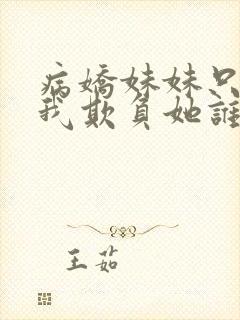 病嬌妹妹只
我欺負她誰
王茹